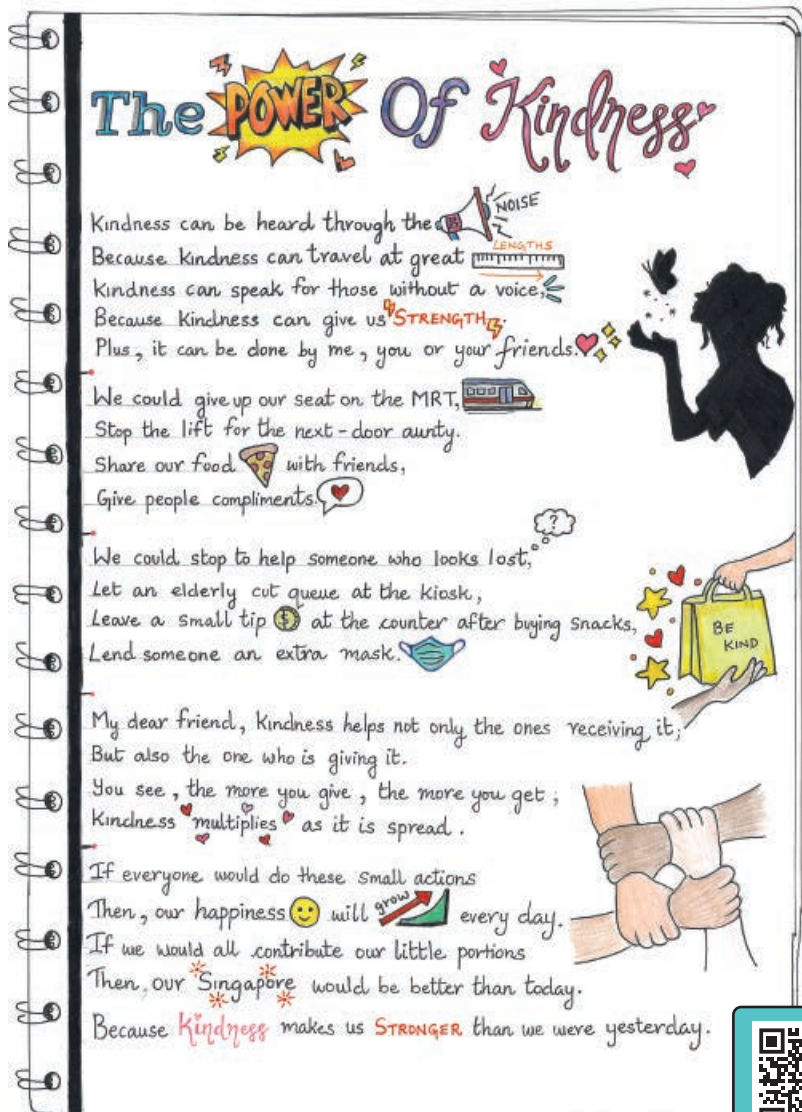 The POWER Of Kindness
Kindness can be heard through the NOISE
Because kindness can travel at great LENGTHS
Kindness can speak for those without a voice,
Because Kindness can give us STRENGTH.
Plus, it can be done by me, you or your friends.
We could give up our seat on the MRT,
Stop the lift for the next-door aunty.
Share our food with friends,
Give people compliments.
?
We could stop to help someone who looks lost,
Let an elderly cut queue at the kiosk,
Leave a small tip $ at the counter after buying snacks,
Lend someone an extra mask.
BE
KIND
My dear friend, Kindness helps not only the ones receiving it;
But also the one who is giving it.
You see, the more you give, the more you get;
Kindness multiplies as it is spread.
If everyone would do these small actions
Then, our happiness will grow every day.
If we would all contribute our little portions
Then, our Singapore would be better than today.
Because Kindness makes us STRONGER than we were yesterday.